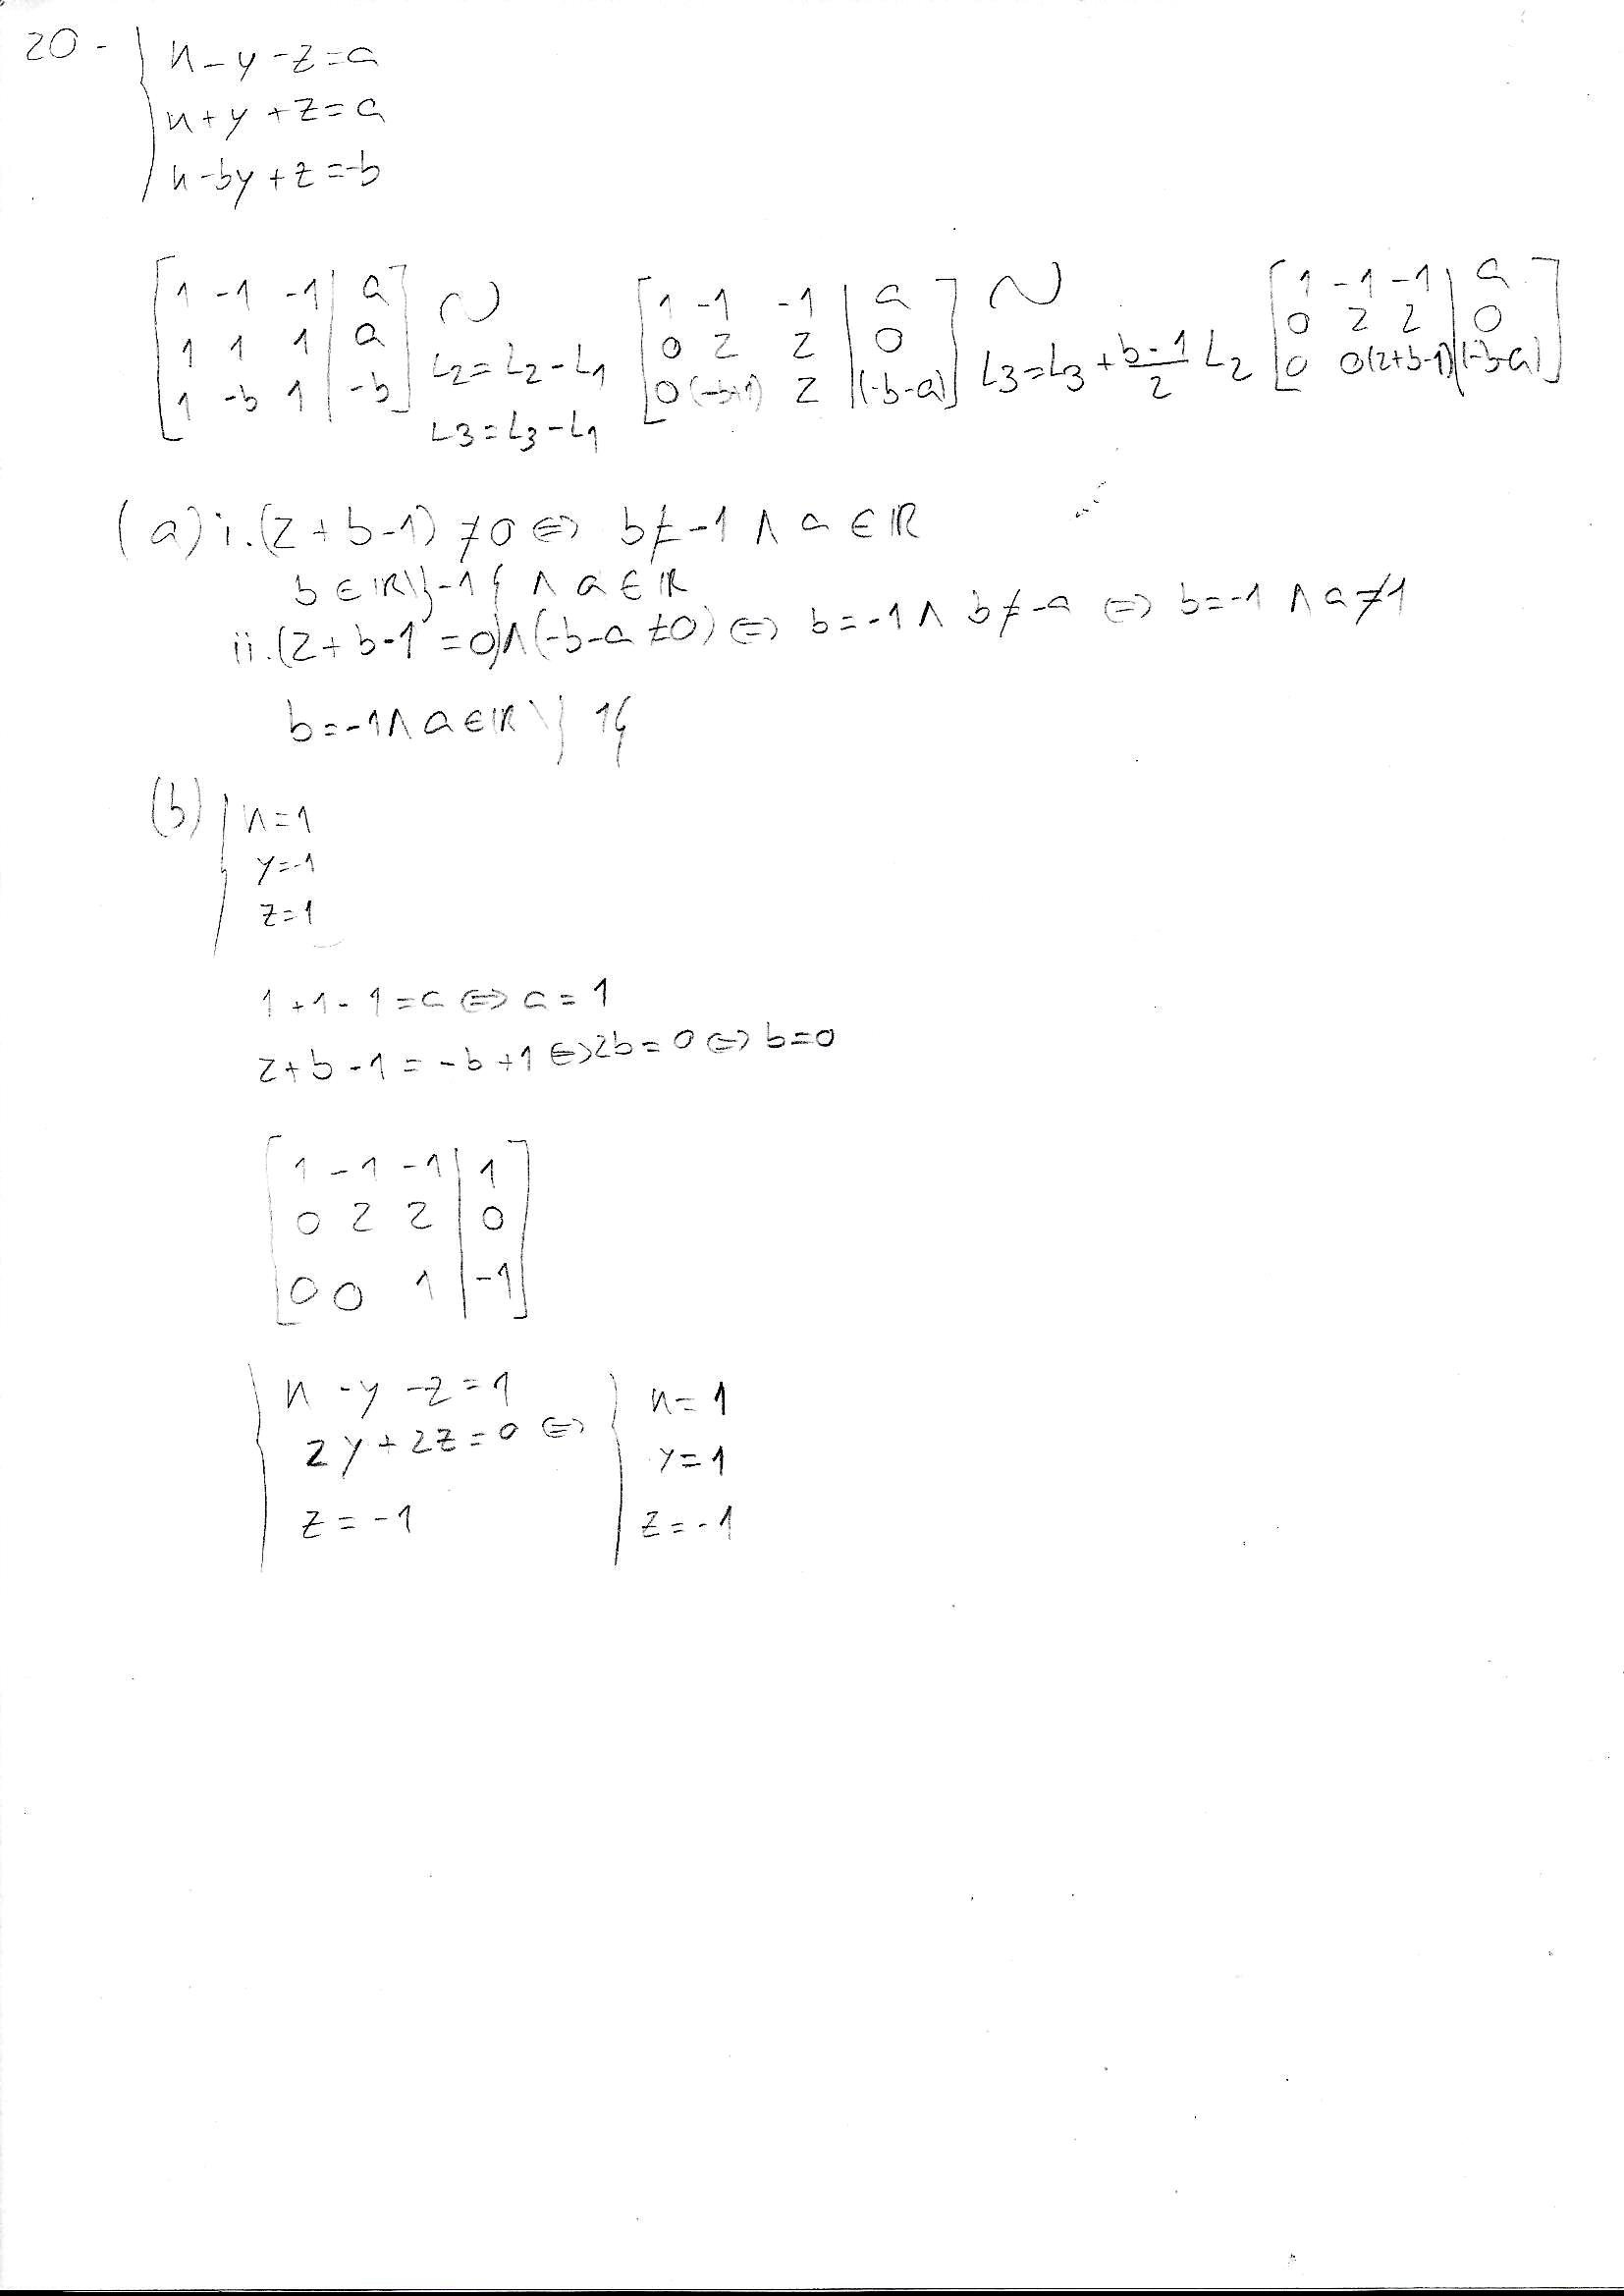 20 - { x - y - z = a
x + y + z = a
x - by + z = -b
[ 1 -1 -1 | a ; 1 1 1 | a ; 1 -b 1 | -b ] ~ L2 = L2 - L1 L3 = L3 - L1 [ 1 -1 -1 | a ; 0 2 2 | 0 ; 0 (-b+1) 2 | (-b-a) ] ~ L3 = L3 + (b-1)/2 L2 [ 1 -1 -1 | a ; 0 2 2 | 0 ; 0 0 (2+b-1) | (-b-a) ]
(a) i. (2 + b - 1) ≠ 0 ⇔ b ≠ -1 ∧ a ∈ ℝ
b ∈ ℝ \ }-1{ ∧ a ∈ ℝ
ii. (2 + b - 1 = 0) ∧ (-b - a ≠ 0) ⇔ b = -1 ∧ b ≠ -a ⇔ b = -1 ∧ a ≠ 1
b = -1 ∧ a ∈ ℝ \ } 1{
(b) { x = 1
y = -1
z = 1
1 + 1 - 1 = a ⇔ a = 1
2 + b - 1 = -b + 1 ⇔ 2b = 0 ⇔ b = 0
[ 1 -1 -1 | 1
0 2 2 | 0
0 0 1 | -1 ]
{ x - y - z = 1
2y + 2z = 0 ⇔
z = -1
{ x = 1
y = 1
z = -1